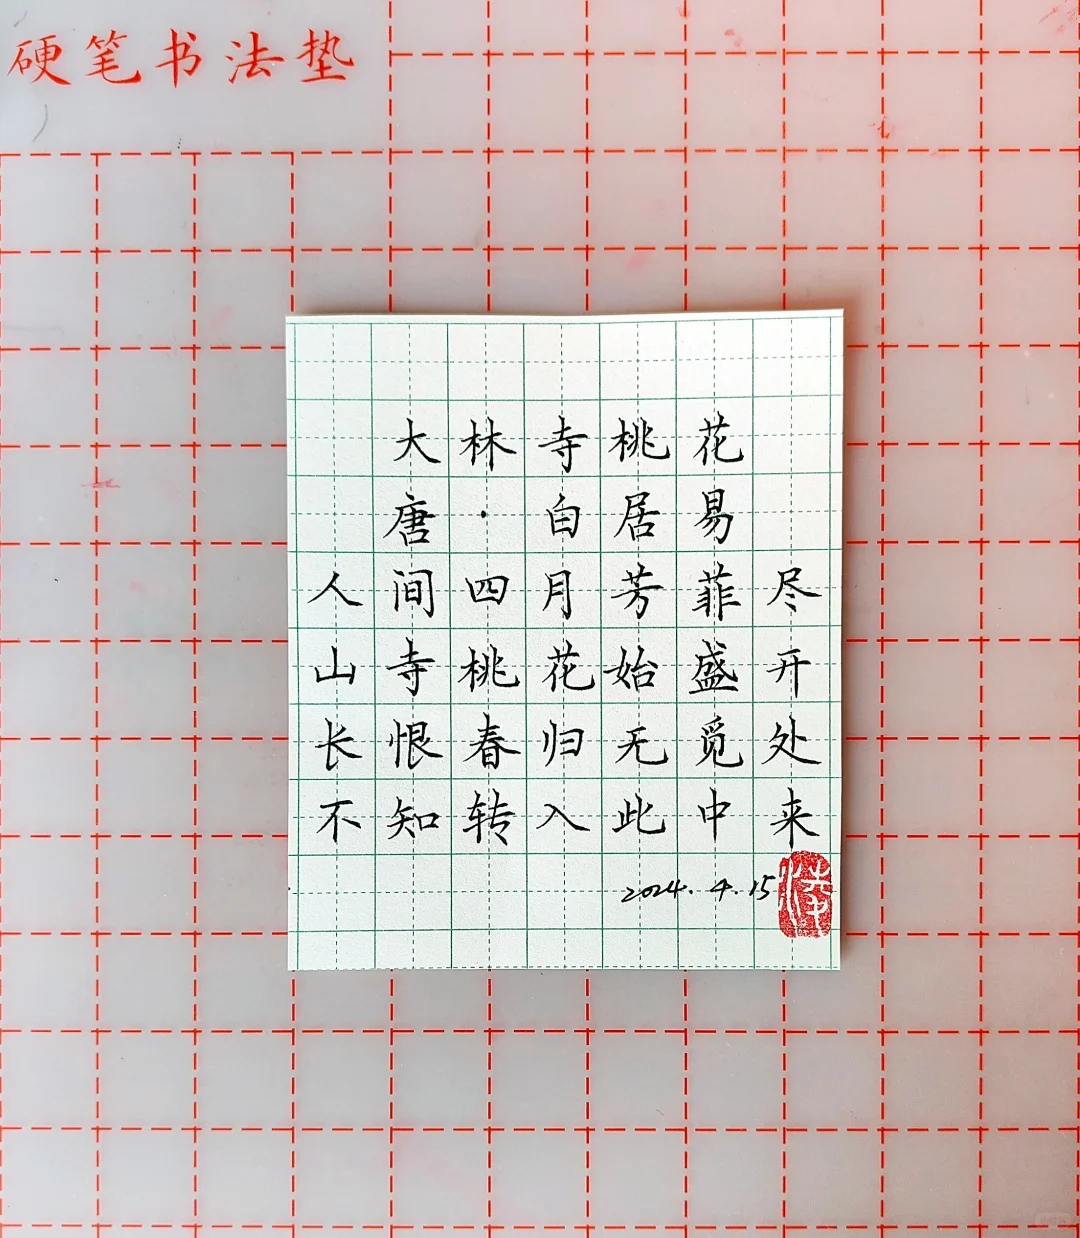 硬笔书法垫
大林寺桃花
唐·白居易
人间四月芳菲尽
山寺桃花始盛开
长恨春归无觅处
不知转入此中来
2024.4.15